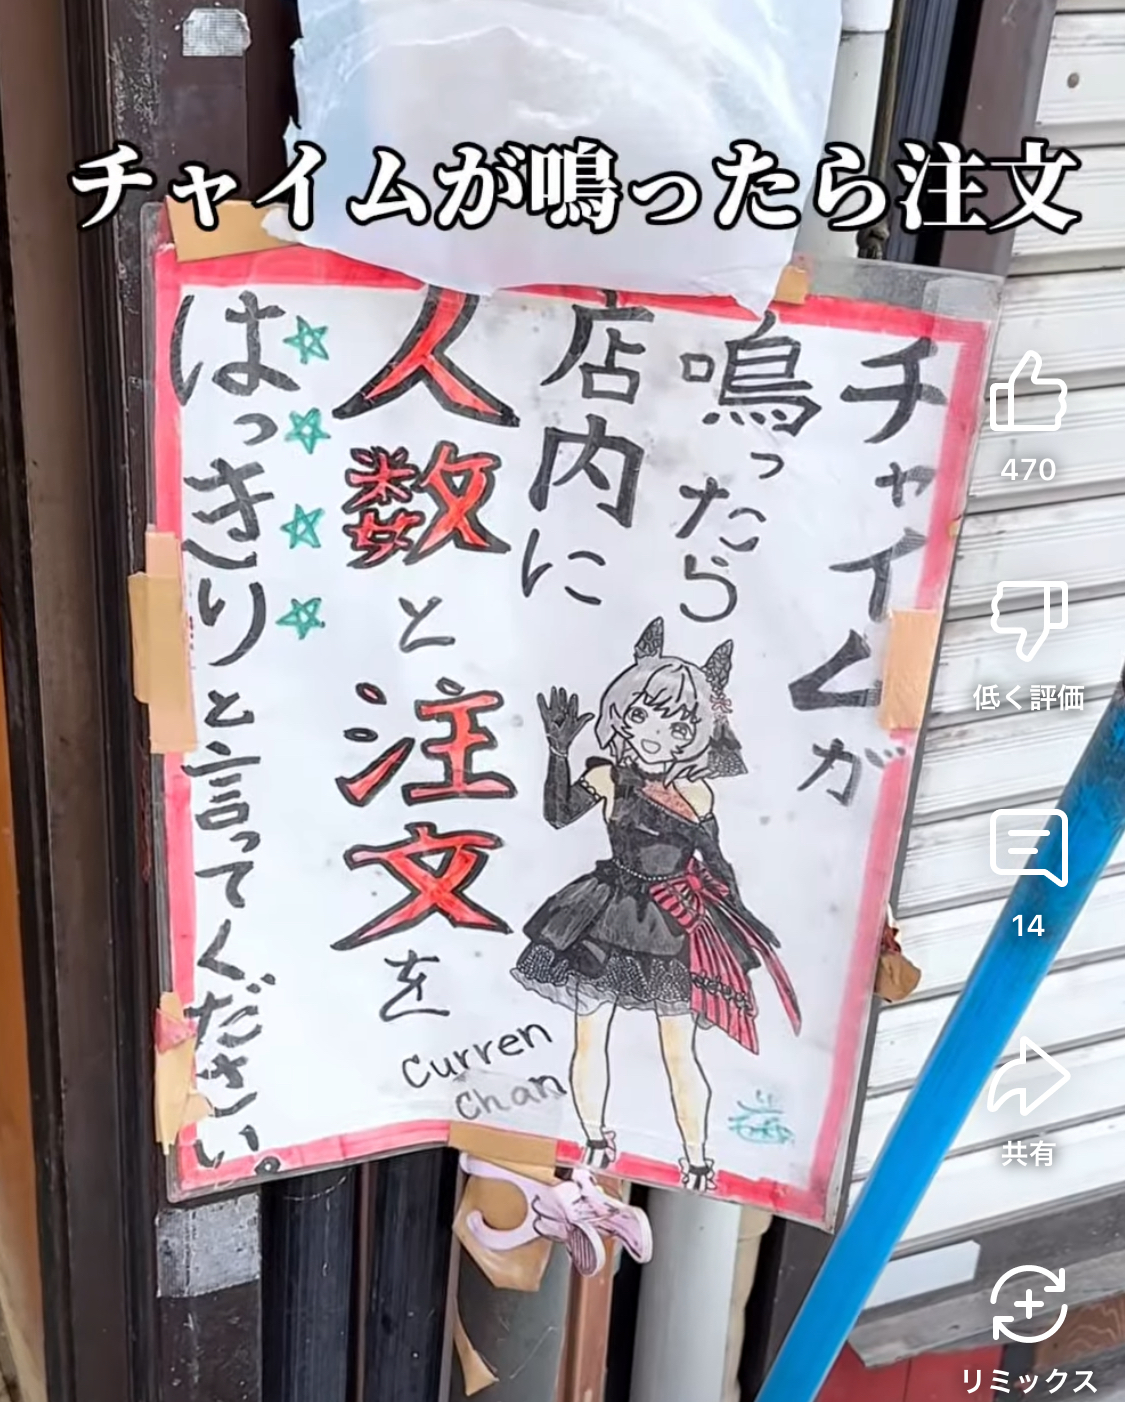 チャイムが鳴ったら注文
チャイムが
鳴ったら
店内に
人数と注文を
はっきりと言ってください。
Curren
chan
470
低く評価
14
共有
リミックス